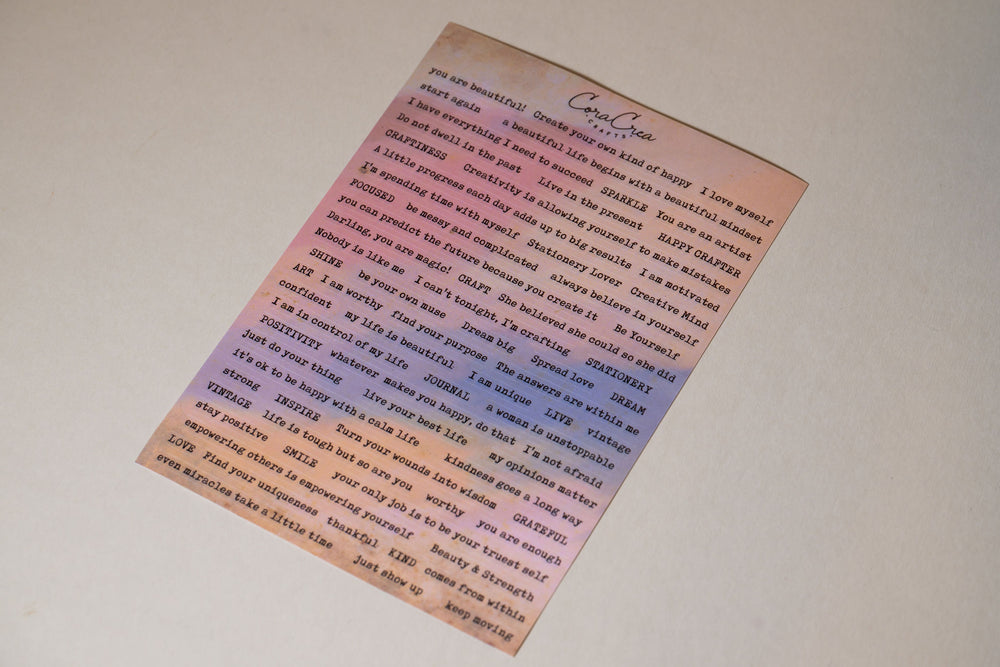 CoraCrea
CRAFTS
you are beautiful! Create your own kind of happy I love myself
start again a beautiful life begins with a beautiful mindset
I have everything I need to succeed SPARKLE You are an artist
Do not dwell in the past Live in the present HAPPY CRAFTER
CRAFTINESS Creativity is allowing yourself to make mistakes
A little progress each day adds up to big results I am motivated
I'm spending time with myself Stationery Lover Creative Mind
FOCUSED be messy and complicated always believe in yourself
you can predict the future because you create it Be Yourself
Darling, you are magic! CRAFT She believed she could so she did
Nobody is like me I can't tonight, I'm crafting STATIONERY
SHINE be your own muse Dream big Spread love DREAM
ART I am worthy find your purpose The answers are within me
confident my life is beautiful I am unique LIVE vintage
I am in control of my life JOURNAL a woman is unstoppable
POSITIVITY whatever makes you happy, do that I'm not afraid
just do your thing live your best life my opinions matter
it's ok to be happy with a calm life kindness goes a long way
strong INSPIRE Turn your wounds into wisdom GRATEFUL
VINTAGE life is tough but so are you worthy you are enough
stay positive SMILE your only job is to be your truest self
empowering others is empowering yourself Beauty & Strength
LOVE Find your uniqueness thankful KIND comes from within
even miracles take a little time just show up keep moving